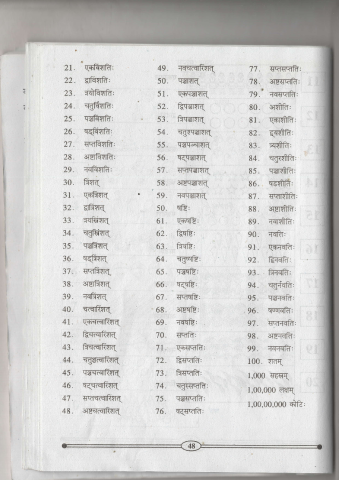 21. एकविंशतिः
22. द्वाविंशतिः
23. त्रयोविंशतिः
24. चतुर्विंशतिः
25. पञ्चविंशतिः
26. षड्विंशतिः
27. सप्तविंशतिः
28. अष्टाविंशतिः
29. नवविंशतिः
30. त्रिंशत्
31. एकत्रिंशत्
32. द्वात्रिंशत्
33. त्रयस्त्रिंशत्
34. चतुस्त्रिंशत्
35. पञ्चत्रिंशत्
36. षट्त्रिंशत्
37. सप्तत्रिंशत्
38. अष्टात्रिंशत्
39. नवत्रिंशत्
40. चत्वारिंशत्
41. एकचत्वारिंशत्
42. द्विचत्वारिंशत्
43. त्रिचत्वारिंशत्
44. चतुश्चत्वारिंशत्
45. पञ्चचत्वारिंशत्
46. षट्चत्वारिंशत्
47. सप्तचत्वारिंशत्
48. अष्टचत्वारिंशत्
49. नवचत्वारिंशत्
50. पञ्चाशत्
51. एकपञ्चाशत्
52. द्विपञ्चाशत्
53. त्रिपञ्चाशत्
54. चतुःपञ्चाशत्
55. पञ्चपञ्चाशत्
56. षट्पञ्चाशत्
57. सप्तपञ्चाशत्
58. अष्टपञ्चाशत्
59. नवपञ्चाशत्
60. षष्टिः
61. एकषष्टिः
62. द्विषष्टिः
63. त्रिषष्टिः
64. चतुष्षष्टिः
65. पञ्चषष्टिः
66. षट्षष्टिः
67. सप्तषष्टिः
68. अष्टषष्टिः
69. नवषष्टिः
70. सप्ततिः
71. एकसप्ततिः
72. द्विसप्ततिः
73. त्रिसप्ततिः
74. चतुस्सप्ततिः
75. पञ्चसप्ततिः
76. षट्सप्ततिः
77. सप्तसप्ततिः
78. अष्टसप्ततिः
79. नवसप्ततिः
80. अशीतिः
81. एकाशीतिः
82. द्वयशीतिः
83. त्र्यशीतिः
84. चतुरशीतिः
85. पञ्चाशीतिः
86. षडशीतिः
87. सप्ताशीतिः
88. अष्टाशीतिः
89. नवाशीतिः
90. नवतिः
91. एकनवतिः
92. द्विनवतिः
93. त्रिनवतिः
94. चतुर्नवतिः
95. पञ्चनवतिः
96. षण्णवतिः
97. सप्तनवतिः
98. अष्टनवतिः
99. नवनवतिः
100. शतम्
1,000 सहस्रम्
1,00,000 लक्षम्
1,00,00,000 कोटिः
48